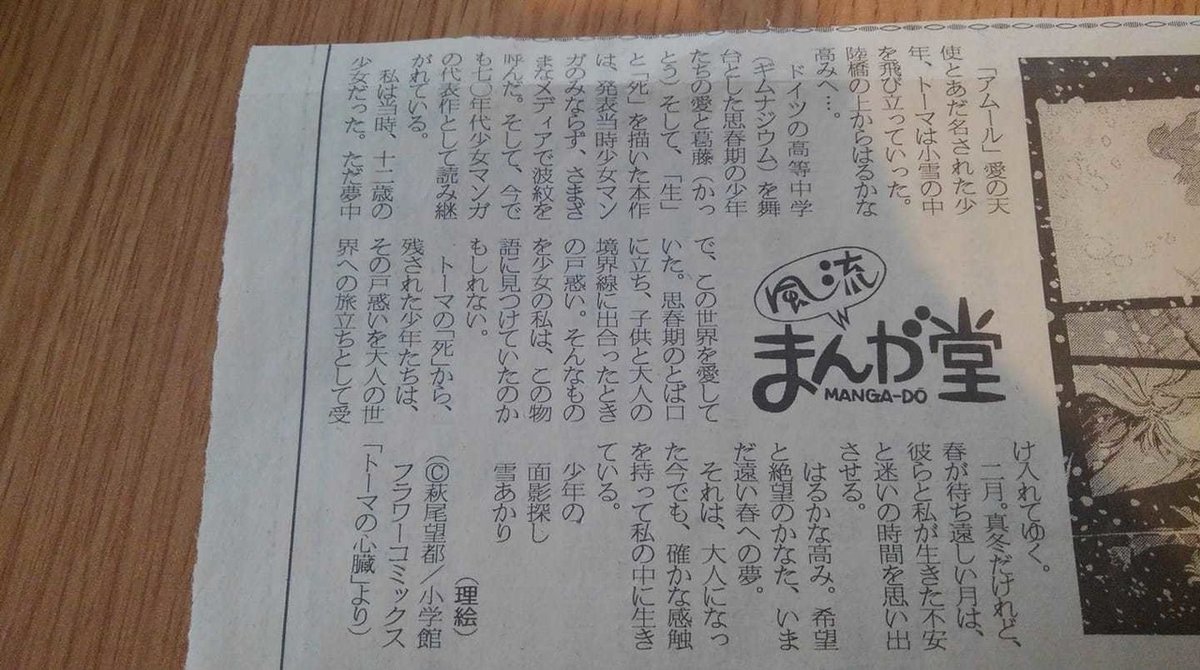 「アムール」愛の天
使とあだ名された少
年、トーマは小雪の中
を飛び立っていった。
陸橋の上からはるかな
高みへ…。
ドイツの高等中学
（ギムナジウム）を舞
台とした思春期の少年
たちの愛と葛藤（かっ
とう）そして、「生」
と「死」を描いた本作
は、発表当時少女マン
ガのみならず、さまざ
まなメディアで波紋を
呼んだ。そして、今で
も七〇年代少女マンガ
の代表作として読み継
がれている。
私は当時、十二歳の
少女だった。ただ夢中
風流
まんが堂
MANGA-DŌ
で、この世界を愛して
いた。思春期のとば口
に立ち、子供と大人の
境界線に出合ったとき
の戸惑い。そんなもの
を少女の私は、この物
語に見つけていたのか
もしれない。
トーマの「死」から、
残された少年たちは、
その戸惑いを大人の世
界への旅立ちとして受
け入れてゆく。
二月。真冬だけれど、
春が待ち遠しい月は、
彼らと私が生きた不安
と迷いの時間を思い出
させる。
はるかな高み。希望
と絶望のかなた、いま
だ遠い春への夢。
それは、大人になっ
た今でも、確かな感触
を持って私の中に生き
ている。
少年の
面影探し
雪あかり
（理絵）
（©萩尾望都／小学館
フラワーコミックス
「トーマの心臓」より）